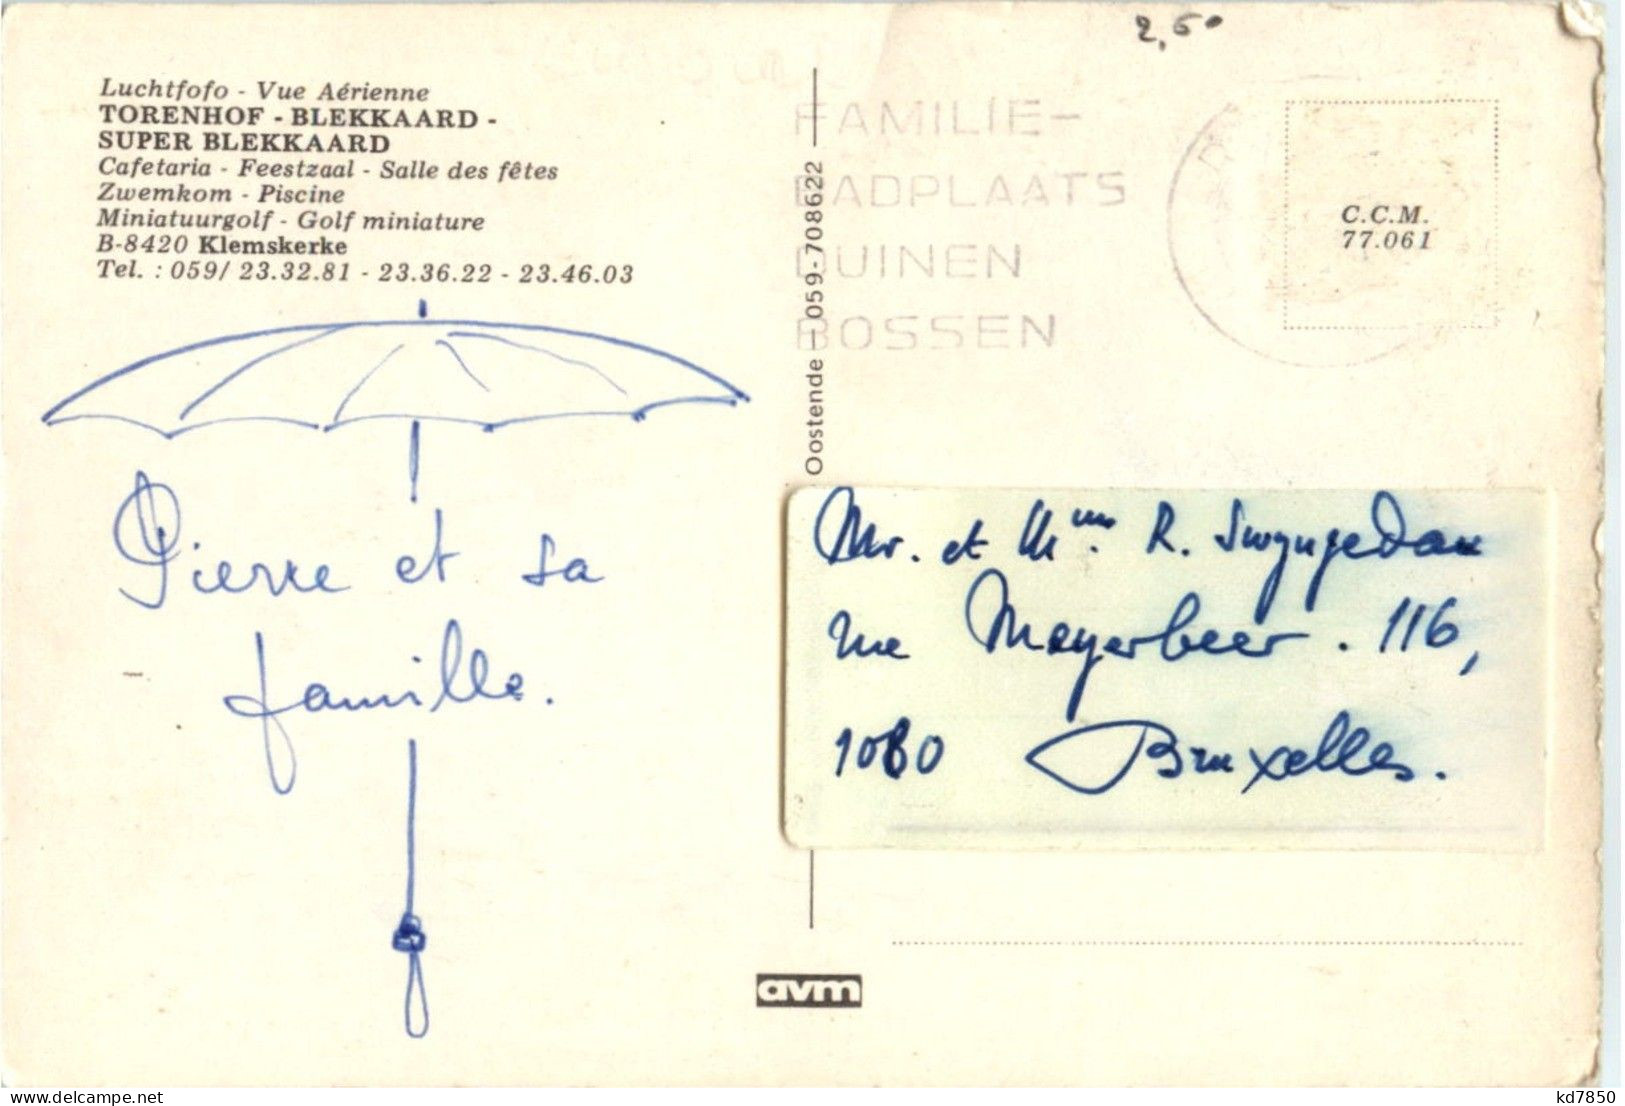 2,50
Luchtfofo - Vue Aérienne
TORENHOF - BLEKKAARD -
SUPER BLEKKAARD
Cafetaria - Feestzaal - Salle des fêtes
Zwemkom - Piscine
Miniatuurgolf - Golf miniature
B-8420 Klemskerke
Tel. : 059/ 23.32.81 - 23.36.22 - 23.46.03
Pierre et sa
famille.
Oostende — 059-708622
FAMILIE-
BADPLAATS
DUINEN
BOSSEN
C.C.M.
77.061
Mr. et Mme. R. Swyngedau
rue Meyerbeer. 116,
1060 Bruxelles.
avm
delcampe.net
kd7850